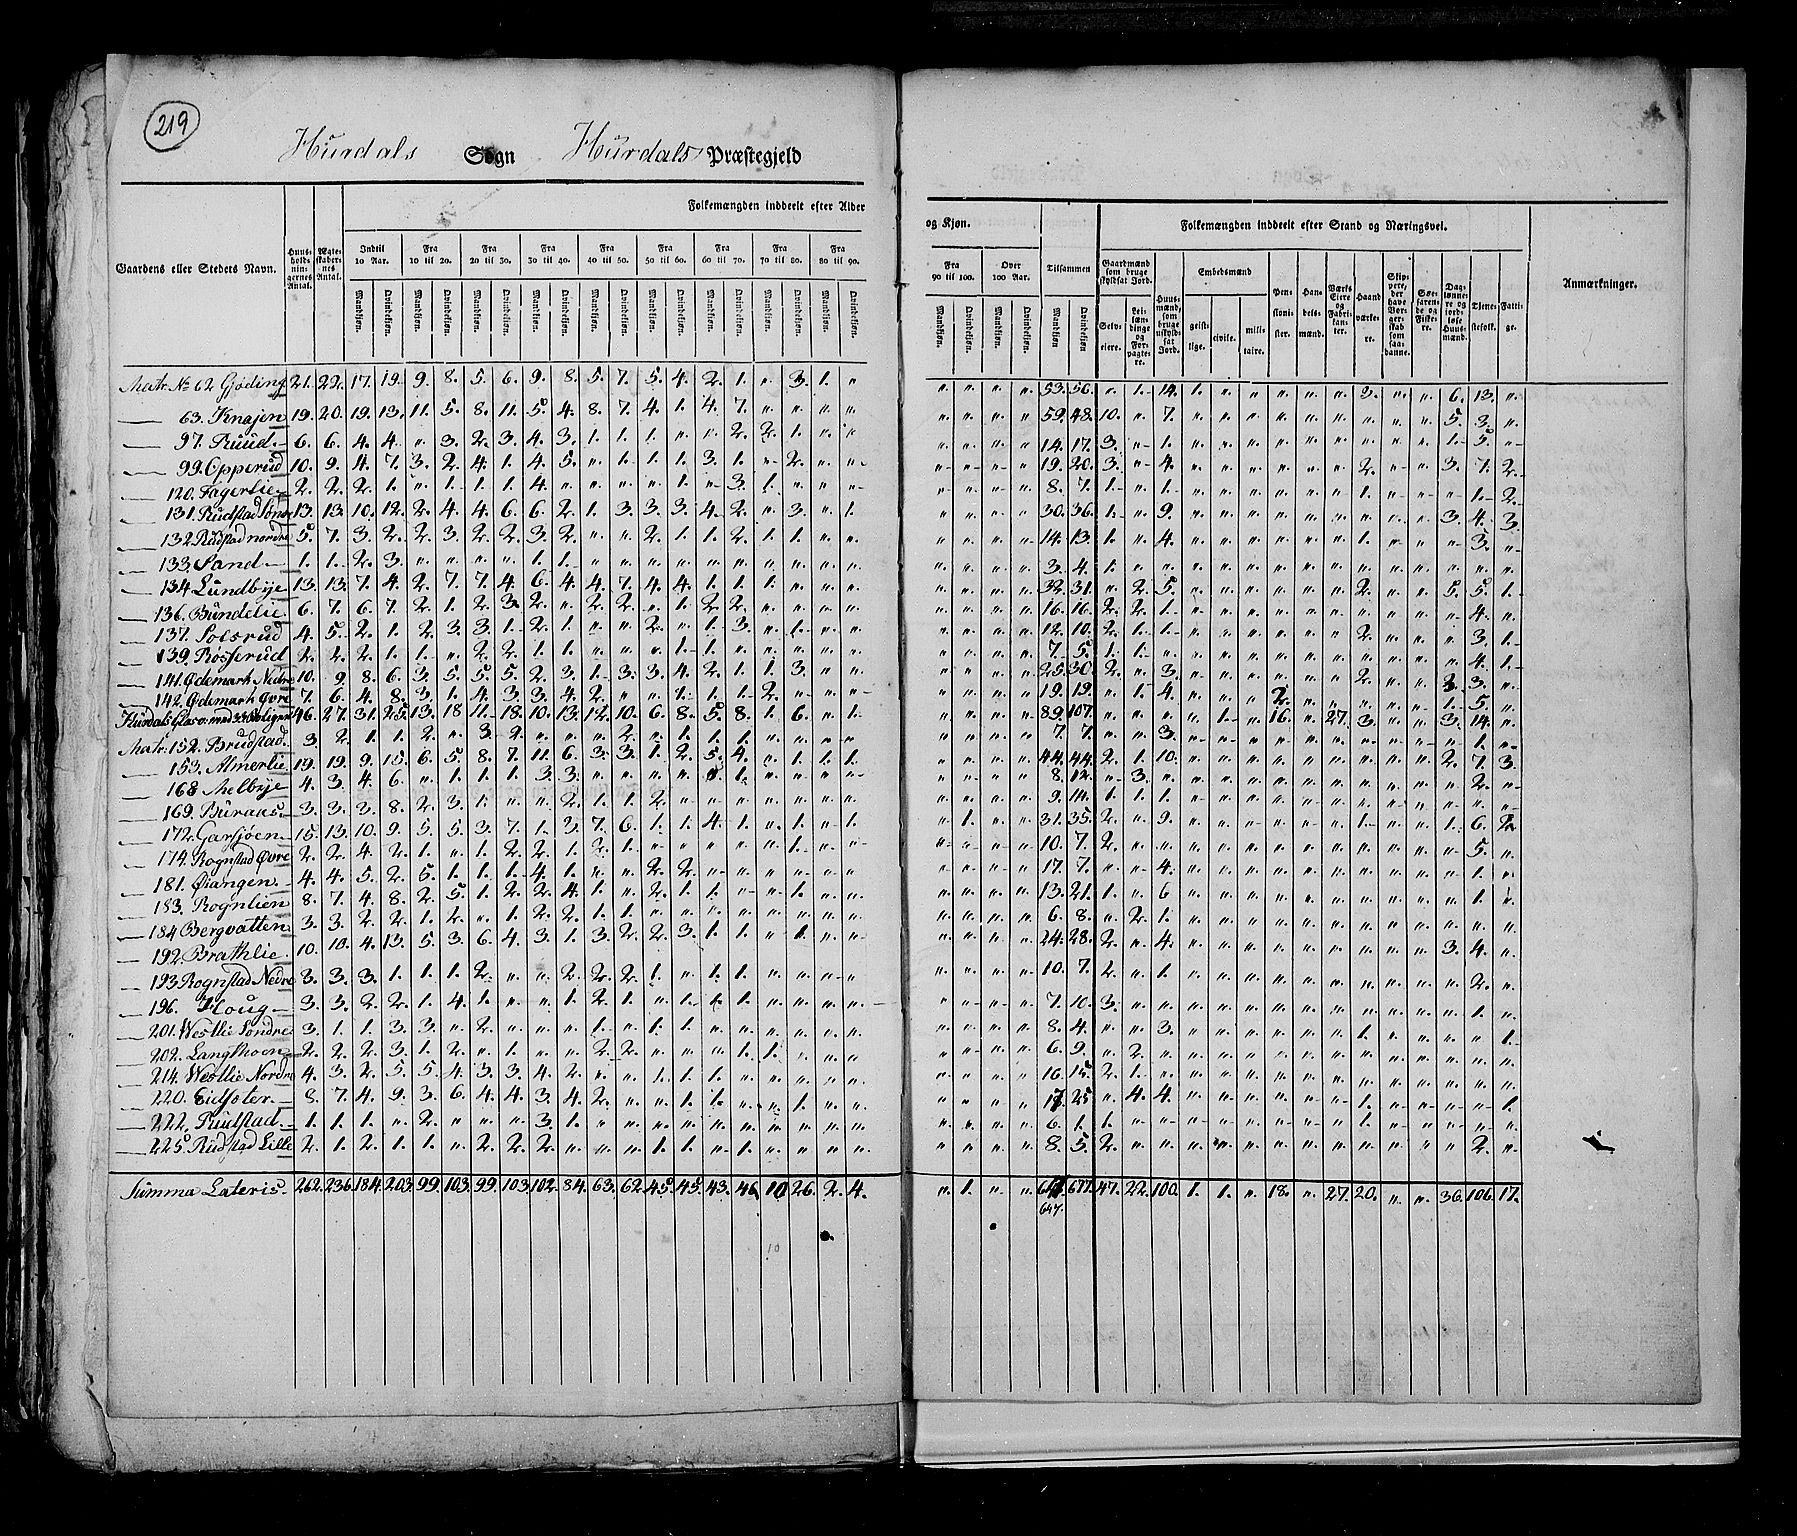 219
Hurdals Sogn Hurdals Præstegjeld
Folkemængden inddeelt efter Alder
og Kjøn.
Folkemængden inddeelt efter Stand og Næringsvei.
Gaardens eller Stedets Navn.
Huusholdningernes Antal.
Ægteskabernes Antal.
Indtil 10 Aar.
Fra 10 til 20.
Fra 20 til 30.
Fra 30 til 40.
Fra 40 til 50.
Fra 50 til 60.
Fra 60 til 70.
Fra 70 til 80.
Fra 80 til 90.
Fra 90 til 100.
Over 100 Aar.
Tilsammen
Mandkjøn. Qvindekjøn.
Gaardmænd som bruge skyldsat Jord.
Selveiere.
Leilændinge og Forpagtere.
Huusmænd, som bruge uskyldsat Jord.
Embedsmænd
geistlige. civile. militaire.
Pensionister.
Handelsmænd.
Værks Eiere og Fabrikanter.
Haandværkere.
Skippere, der have Borgerskab som saadanne.
Søefarende og Fiskere.
Daglønnere og jordløse Huusmænd.
Tjenestefolk.
Fattige.
Anmærkninger.
Matr. No 62 Gjøding 21. 22. 17. 19. 9. 8. 5. 6. 9. 8. 5. 7. 5. 4. 2. 1. " 3. 1. " " " " " 53. 56. " 1. 14. 1. " " " " " 3. " " 6. 13. "
63. Knajen 19. 20. 19. 13. 11. 5. 8. 11. 5. 4. 8. 7. 4. 1. 4. 7. " " " " " " " " 59. 48. 10. " 7. " " " " " " " " " 5. 3. "
97. Ruud 6. 6. 4. 4. " 3. 2. 3. 4. 3. 1. 1. 1. " " 2. 2. 1. " " " " " " 14. 17. 3. " 1. " " " " " " " " " 1. 5. "
99. Opperud 10. 9. 4. 7. 3. 2. 4. 1. 4. 5. " 1. 1. 1. 3. 1. " 2. " " " " " " 19. 20. 3. " 4. " " " " " " 2. " " 3. 7. 2.
120. Fagerlie 2. 2. 2. 1. " 1. 1. 1. 4. " " " " 1. " 3. 1. " " " " " " " 8. 7. 1. " 1. " " " " " " 1. " " " 1. 2.
131. Rudstad Søndre 13. 13. 10. 12. 2. 4. 4. 6. 6. 2. 1. 3. 3. 3. 4. 2. " 3. " 1. " " " " 30. 36. 1. " 9. " " " " " " " " " 3. 4. 3.
132. Rudstad nordre 5. 7. 3. 2. 2. 3. 2. 2. 3. 2. " " 2. 1. 1. 2. 1. 1. " " " " " " 14. 13. 1. " 4. " " " " " " 1. " " " 3. "
133. Sand 1. 1. 2. 3. " " " " 1. 1. " " " " " " " " " " " " " " 3. 4. 1. " " " " " " " " " " " " " "
134. Lundbye 13. 13. 7. 4. 2. 7. 7. 4. 6. 4. 4. 7. 4. 4. 1. 1. 1. " " " " " " " 32. 31. " 2. 5. " " " " " " 2. " " 5. 5. 1.
136. Bundelie 6. 7. 6. 7. 2. 1. 2. 3. 2. " 2. 2. " 1. 2. 2. " " " " " " " " 16. 16. 2. 2. 1. " " " " " " " " " " 4. "
137. Solsrud 4. 5. 2. 1. 2. 3. 3. 1. 2. 1. " " 2. " 1. 3. " 1. " " " " " " 12. 10. 2. 1. 1. " " " " " " 2. " " " 3. 1.
139. Røsserud 2. 2. 2. 1. 1. " 2. 2. 1. 1. " " " 1. 1. " " " " " " " " " 7. 5. 1. 1. " " " " " " " " " " " 4. 1.
141. Ødemark Nedre 10. 9. 8. 6. 3. 5. 5. 5. 2. 3. 1. 3. 3. 4. 2. 1. 1. 3. " " " " " " 25. 30. 2. " 3. " " " " " " 2. " " 3. 3. "
142. Ødemark Øvre 7. 6. 4. 8. 3. 1. 4. 3. 3. 4. 2. " " 1. 1. 1. 2. " " " " " " " 19. 19. " 1. 4. " " " 2. " " " " " 1. 5. "
Hurdals Glas 46. 27. 31. 25. 13. 18. 11. 18. 10. 13. 12. 10. 6. 8. 5. 8. 1. 6. " 1. " " " " 89. 107. " " " " 1. " 16. " 27. 3. " " 3. 14. "
Matr. 152. Brudstad. 3. 2. 1. 1. 2. " 3. 2. " " " 2. " 1. 1. 1. " " " " " " " " 7. 7. " " 3. " " " " " " " " " " 1. "
153. Almerlie 19. 19. 9. 15. 6. 5. 8. 7. 11. 6. 3. 3. 1. 2. 5. 4. " 1. 1. 1. " " " " 44. 44. 2. 1. 10. " " " " " " " " " 2. 7. 3.
168 Melbye 4. 3. 4. 6. " 1. 1. 1. 3. 3. " " " " " 1. " " " " " " " " 8. 12. " 3. " " " " " " " " " " " 2. "
169. Buraas 3. 3. 3. 8. 2. 3. 1. " " 2. 1. 1. 2. " " " " " " " " " " " 9. 14. 1. 1. 1. " " " " " " " " " " " "
172. Garsjøen 15. 13. 10. 9. 5. 5. 3. 7. 1. 3. 7. 6. 1. 1. 4. 1. " 1. " 1. " 1. " " 31. 35. 2. " 9. " " " " " " 1. " " 1. 6. 2.
174. Rognstad Øvre 2. 2. 4. 2. 1. " 1. 2. 2. 1. 2. 1. " " " " " 1. " " " " " " 10. 7. 2. " " " " " " " " " " " " 5. "
181. Øiangen 4. 4. 5. 2. 5. 1. 1. 1. 4. 1. " " 2. 2. " " " " " " " " " " 17. 7. " " 4. " " " " " " " " " " 1. "
183. Rognlien 8. 7. 4. 8. 2. 5. 1. 2. 2. 4. 1. " 2. 1. 1. " " 1. " " " " " " 13. 21. 1. " 6 " " " " " " " " " " 1. "
184 Bergvatten 3. 3. 2. 2. 1. 2. " 1. 2. 2. 1. 1. " " " " " " " " " " " " 6. 8. " 2. 1. " " " " " " " " " " " "
192. Brathlie 10. 10. 4. 13. 5. 3. 6. 4. 3. 1. 3. 2. 2. 3. 1. 1. " 1. " " " " " " 24. 28. 2. " 4. " " " " " " " " " 3. 4. "
193 Rognstad Nedre 3. 3. 3. 1. 1. 1. 2. " " 2. 2. 2. 1. " 1. 1. " " " " " " " " 10. 7. 2. " 1. " " " " " " " " " " 2. "
196. Houg 3. 3. 2. 2. 1. 4. 1. " " 1. 2. 1. " " 1. 1. " " " " " " " " 7. 10. 3. " " " " " " " " " " " " 1. "
201. Westlie Søndre 3. 1. 1. 3. 3. " 2. " " " 1. " 1. 1. " " " " " " " " " " 8. 4. " " 3. " " " " " " 1. " " " " 1.
202. Langthoen 2. 2. 2. 3. 1. 2. " 1. " " 2. 2. " " " 1. 1. " " " " " " " 6. 9. " 2. " " " " " " " " " " " " "
214. Westlie Nordre 4. 3. 2. 5. 5. 4. 3. 3. 4. 2. " " 1. 1. 1. " " " " " " " " " 16. 15. 2. 1. " " " " " " " " " " " " "
220. Eidsoter 8. 7. 4. 9. 3. 6. 4. 4. 3. 4. 2. " " 1. 1. " " 1. " " " " " " 17. 25 " 4. 4. " " " " " " 1. " " " " 1.
222. Rudstad 1. 1. 1. " 2. " " " 3. 1. " " " " " " " " " " " " " " 6. 1. 1. " " " " " " " " 1. " " " " "
225. Rudstad Lille 2. 1. 2. 1. 1. " 2. 2. 2. " " " 1. 1. " 1. " " " " " " " " 8. 5. 2. " " " " " " " " " " " " 2. "
Summa Lateris. 262. 236. 184. 203. 99. 103. 99. 103. 102. 84. 63. 62. 45. 45. 43. 46. 10 26. 2. 4. " 1. " " 677. 47. 22. 100. 1. 1. " 18. " 27. 20. " " 36. 106. 17.
647.
10